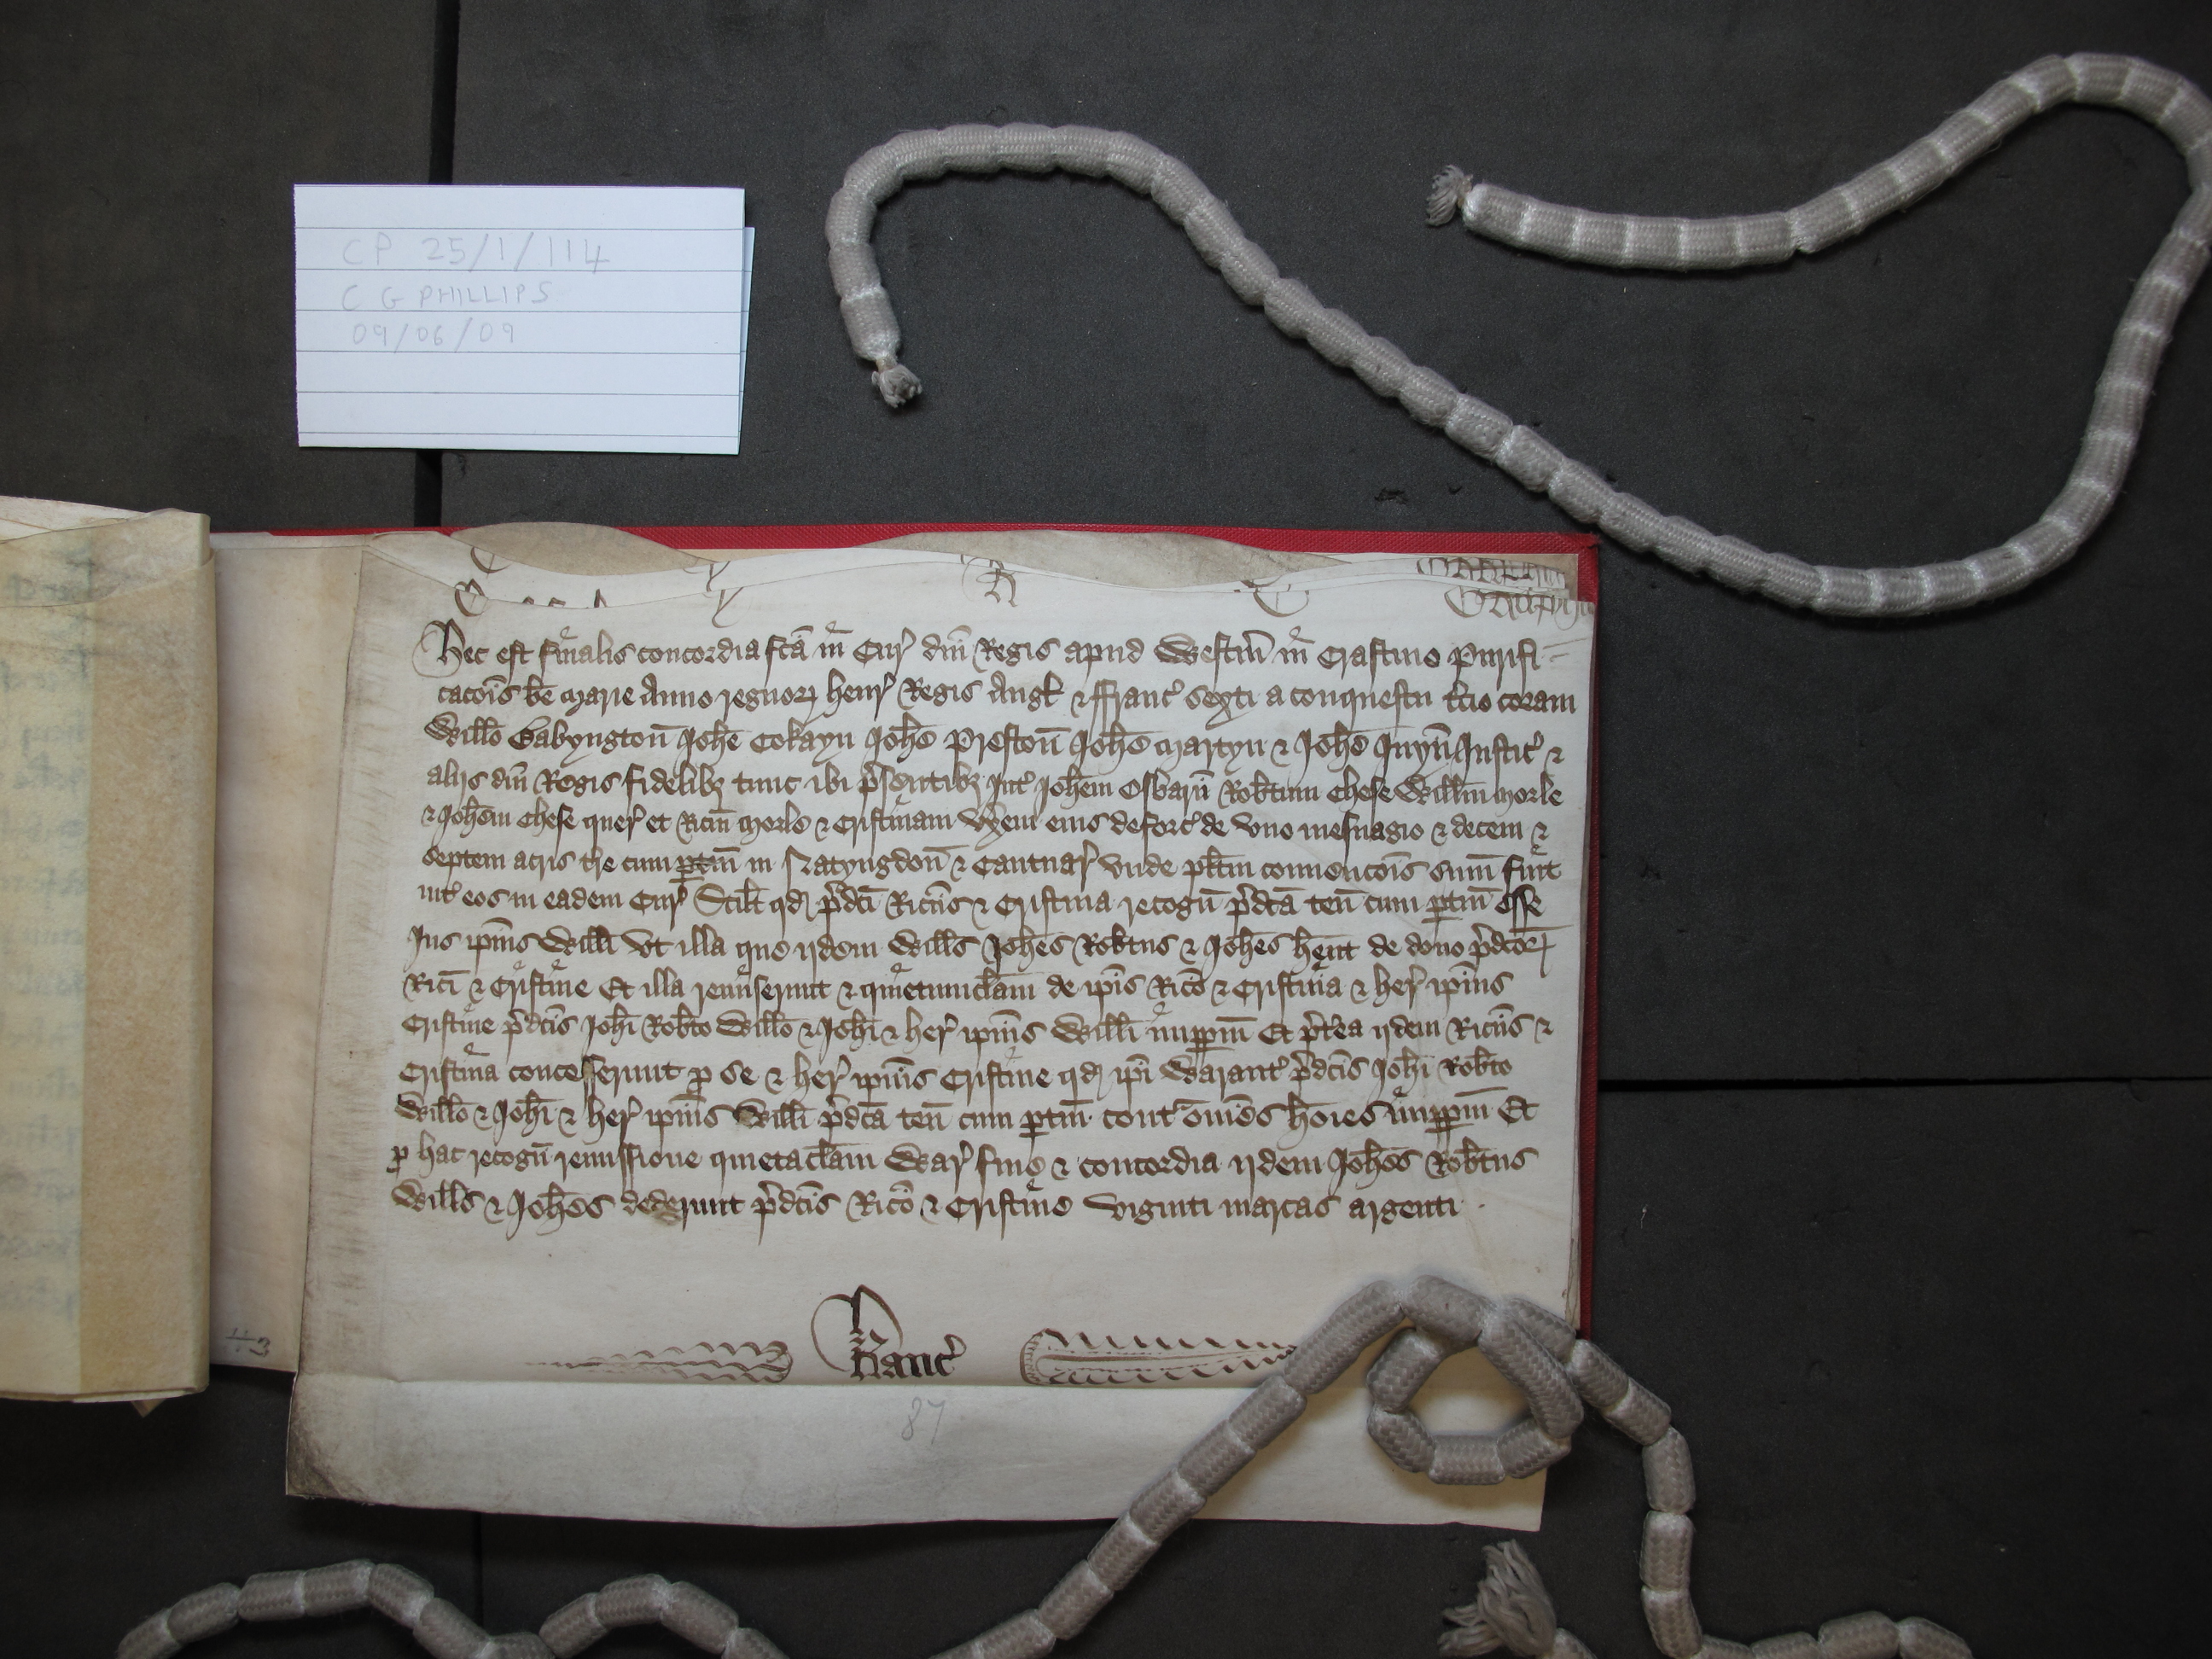 CP 25/1/114
C G PHILLIPS
09/06/09
Hec est finalis concordia fcã in Cur' dñi Regis apud Westm̃ in Crastino Purifi-
cacõis bẽ Marie Anno regnoꝝ Henr' Regis Angł & Franc' sexti a conquestu t'cio coram
Willo Babyngton̄ Johe Cokayn Johe Preston̄ Johe Martyn & Johe Juyn̄ Justic' &
alijs dñi Regis fidelibꝫ tunc ibi p'sentibꝫ Int' Johem Osbarn̄ Robtum Chese Willm Morle
& Johem Chese quer' et Ricm̃ Morle & Cristinam vxem eius deforc' de vno mesuagio & decem &
septem acris t're cum ptiñ in Natyngdon̄ & Cantuar' vnde pltm conuencõis sum̃ fuit
int' eos in eadem Cur' Scilt qd p'dci Ricus & Cristina recogn̄ p'dcã teñ cum ptiñ esse
Jus ipius Willi vt illa que ijdem Wills Johes Robtus & Johes hent de dono p'dcoꝝ
Rici & Cristine Et illa remiserunt & quietumclam̃ de ipis Rico & Cristina & her' ipius
Cristine p'dcis Johi Robto Willo & Johi & her' ipius Willi imppm̃ Et p't'ea ijdem Ricus &
Cristina concesserunt p se & her' ipius Cristine qd ipi Warant' p'dcis Johi Robto
Willo & Johi & her' ipius Willi p'dcã teñ cum ptiñ cont' om̃es hoies imppm̃ Et
p hac recogn̄ remissione quietaclam̃ War' fine & concordia ijdem Johes Robtus
Wills & Johes dederunt p'dcis Rico & Cristine viginti marcas argenti
Kanc'
87